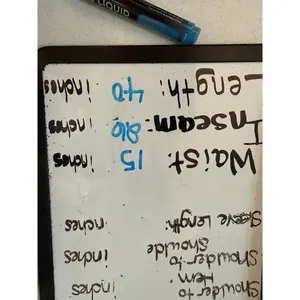 Shoulder to
Hem: inches
Shoulder to
Shoulde inches
Sleeve Length: inches
Waist: 15 inches
Inseam: inches
Length: 40 inches
LIQUID